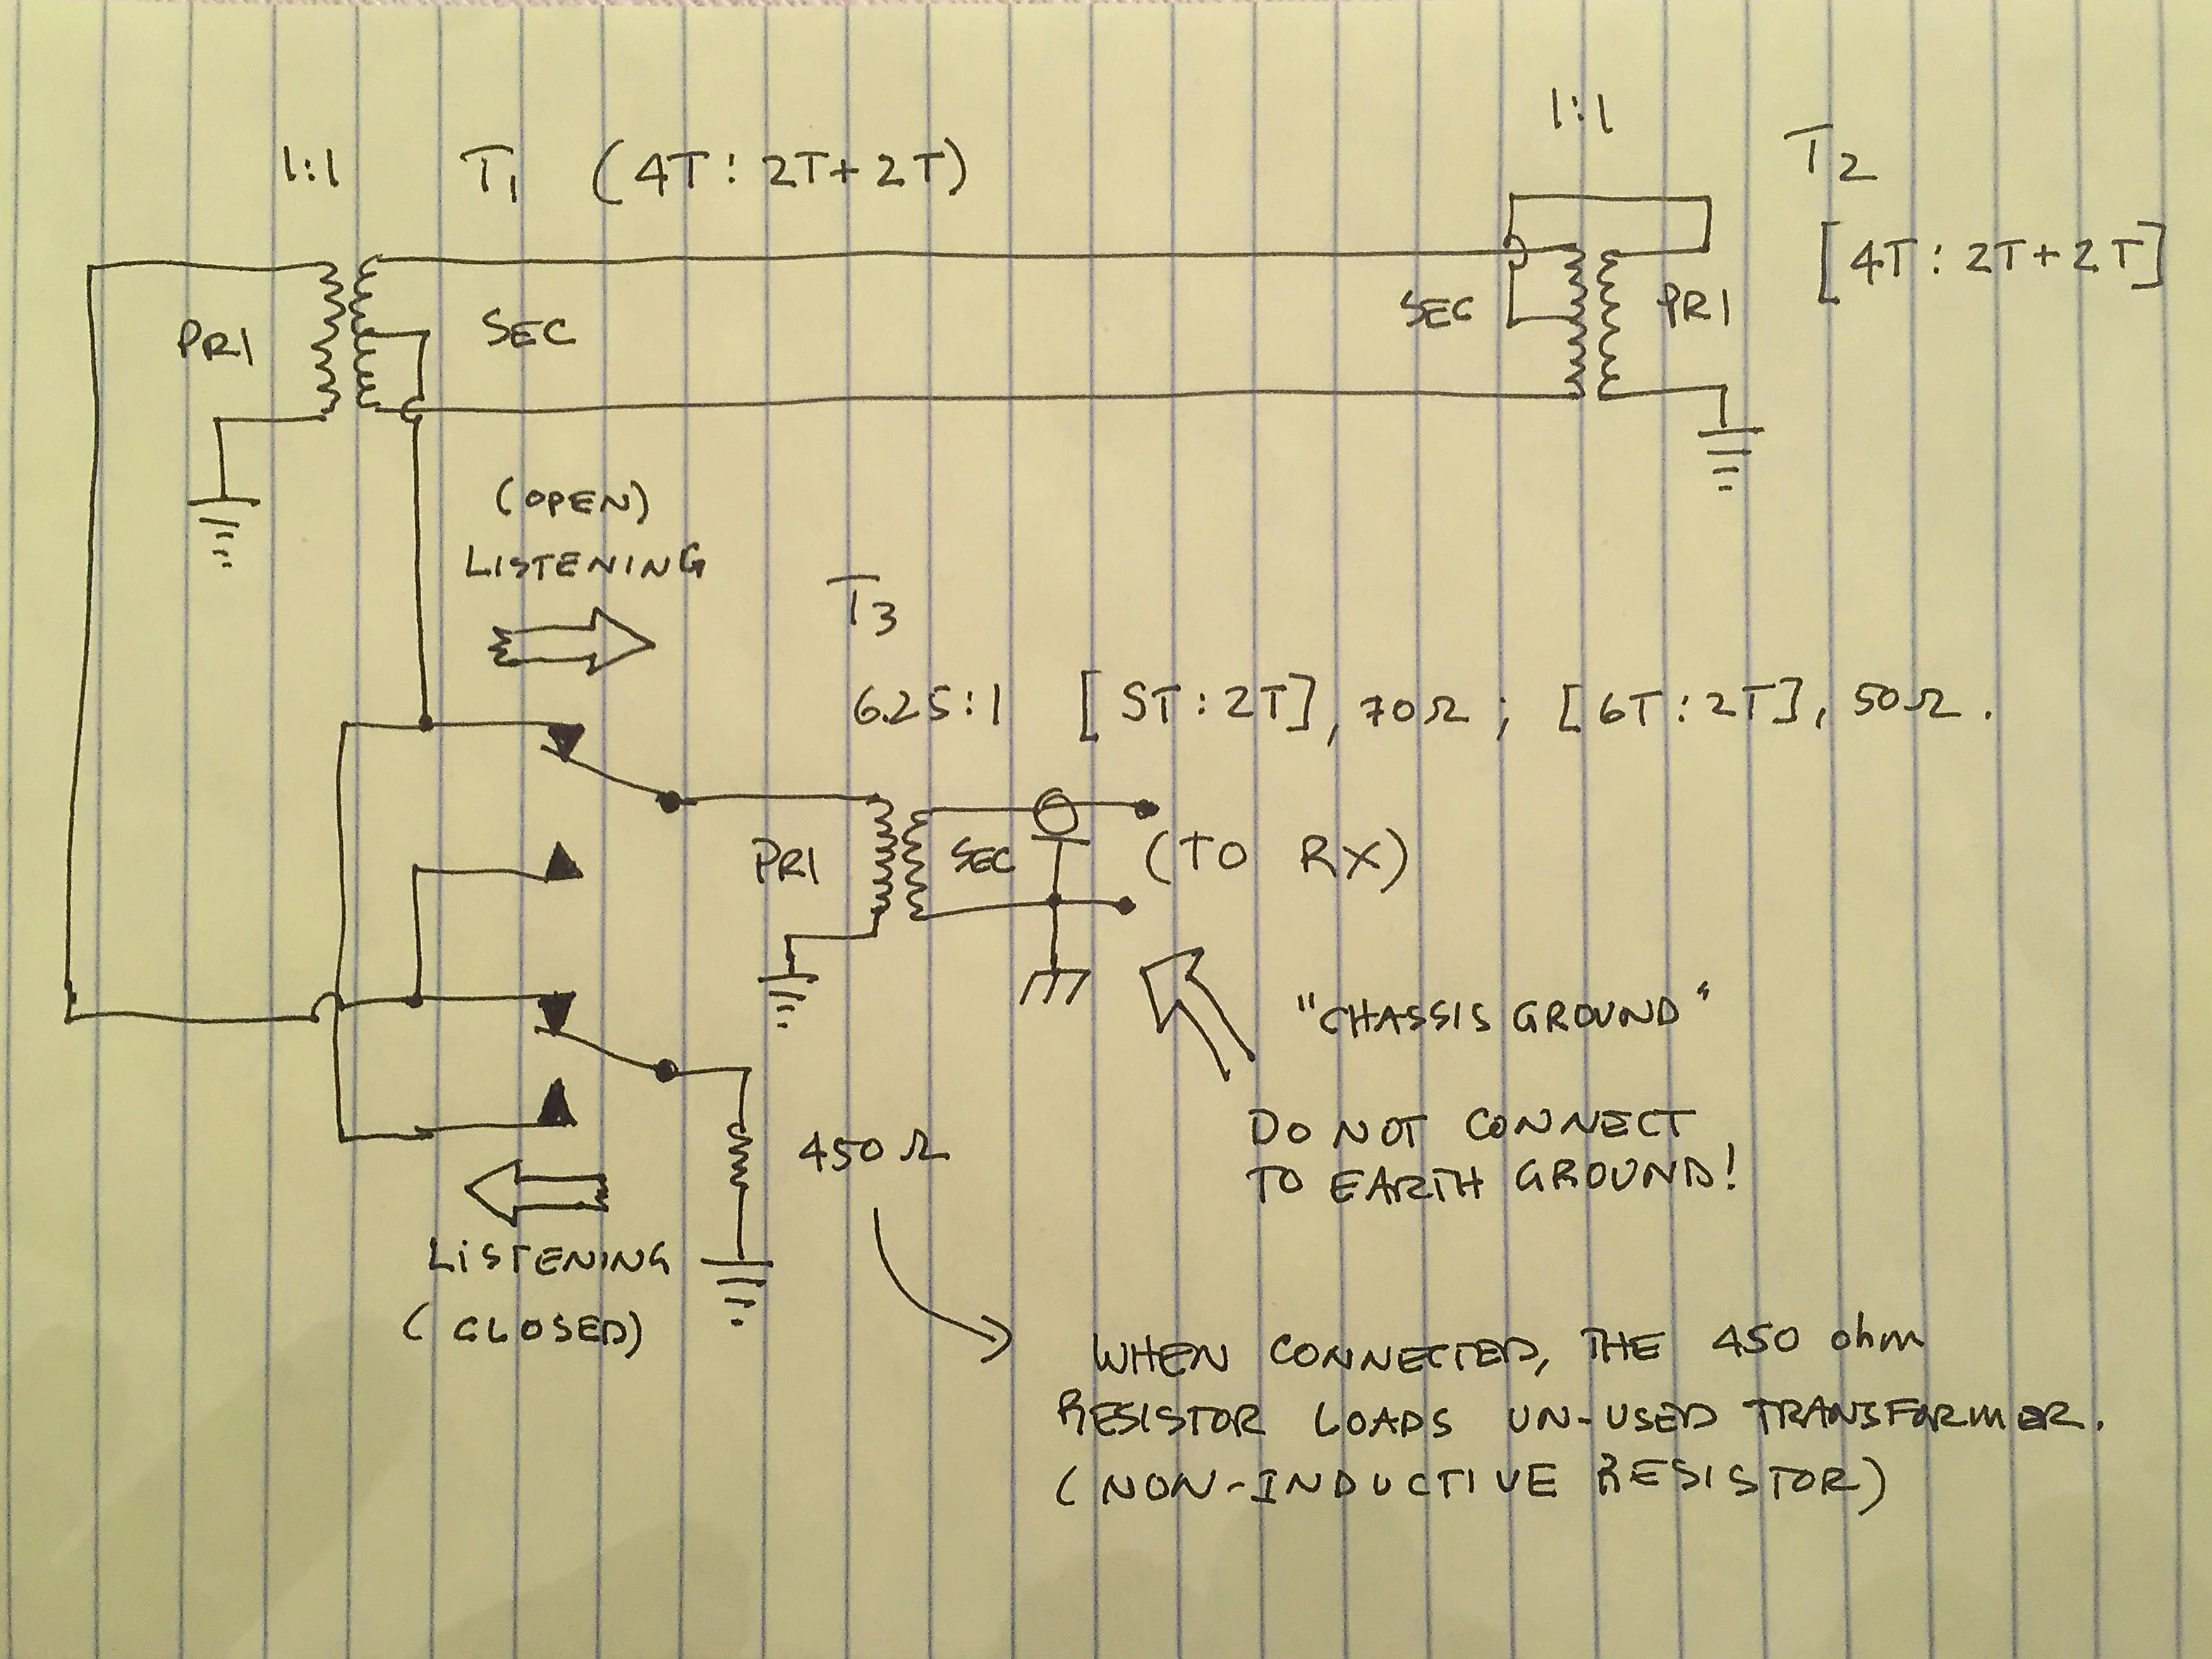 1:1
T1 (4T: 2T+2T)
1:1
T2
[4T: 2T+2T]
PRI
SEC
SEC
PRI
(OPEN)
LISTENING
T3
6.25:1 [5T:2T], 70Ω; [6T:2T], 50Ω.
PRI
SEC
(TO RX)
"CHASSIS GROUND"
DO NOT CONNECT
TO EARTH GROUND!
450Ω
LISTENING
(CLOSED)
WHEN CONNECTED, THE 450 ohm
RESISTOR LOADS UN-USED TRANSFORMER.
(NON-INDUCTIVE RESISTOR)